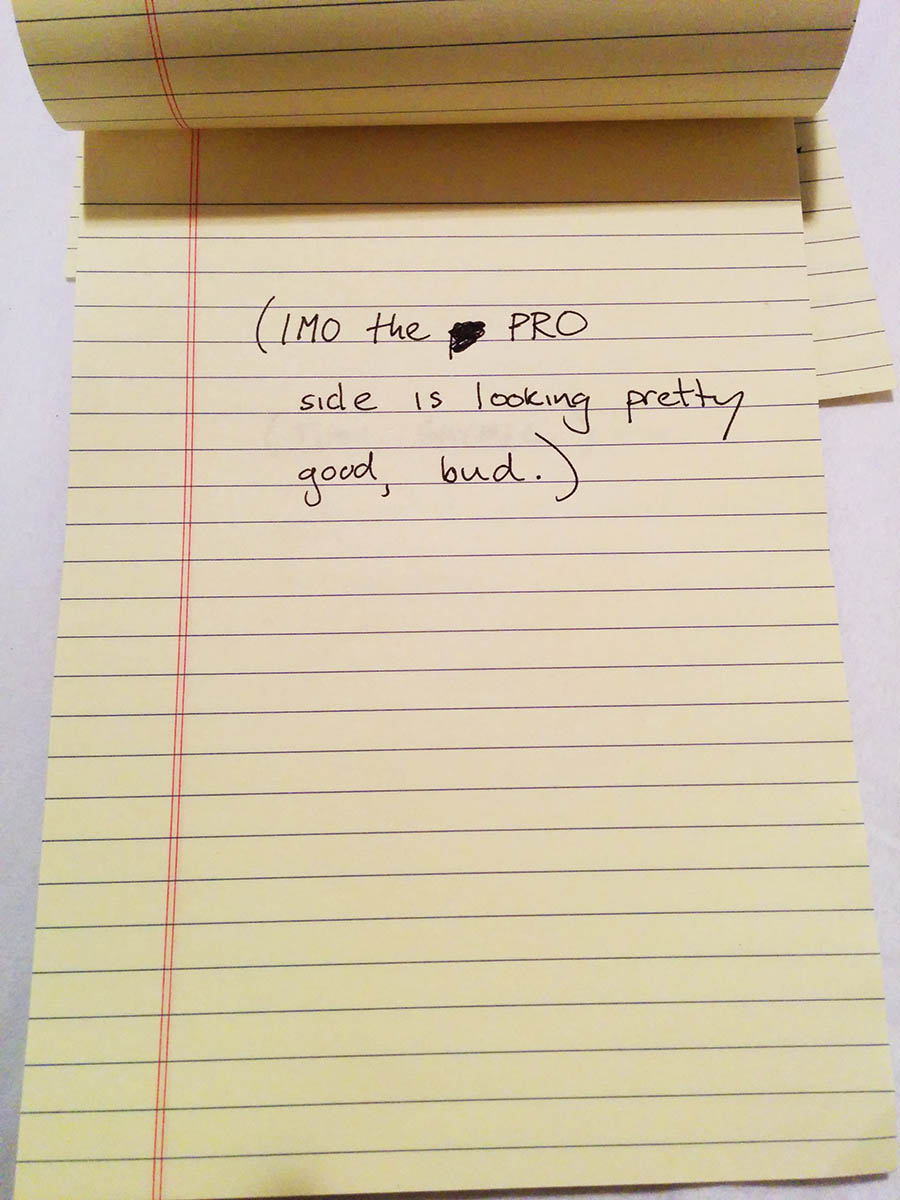 (IMO the PRO
side is looking pretty
good, bud.)